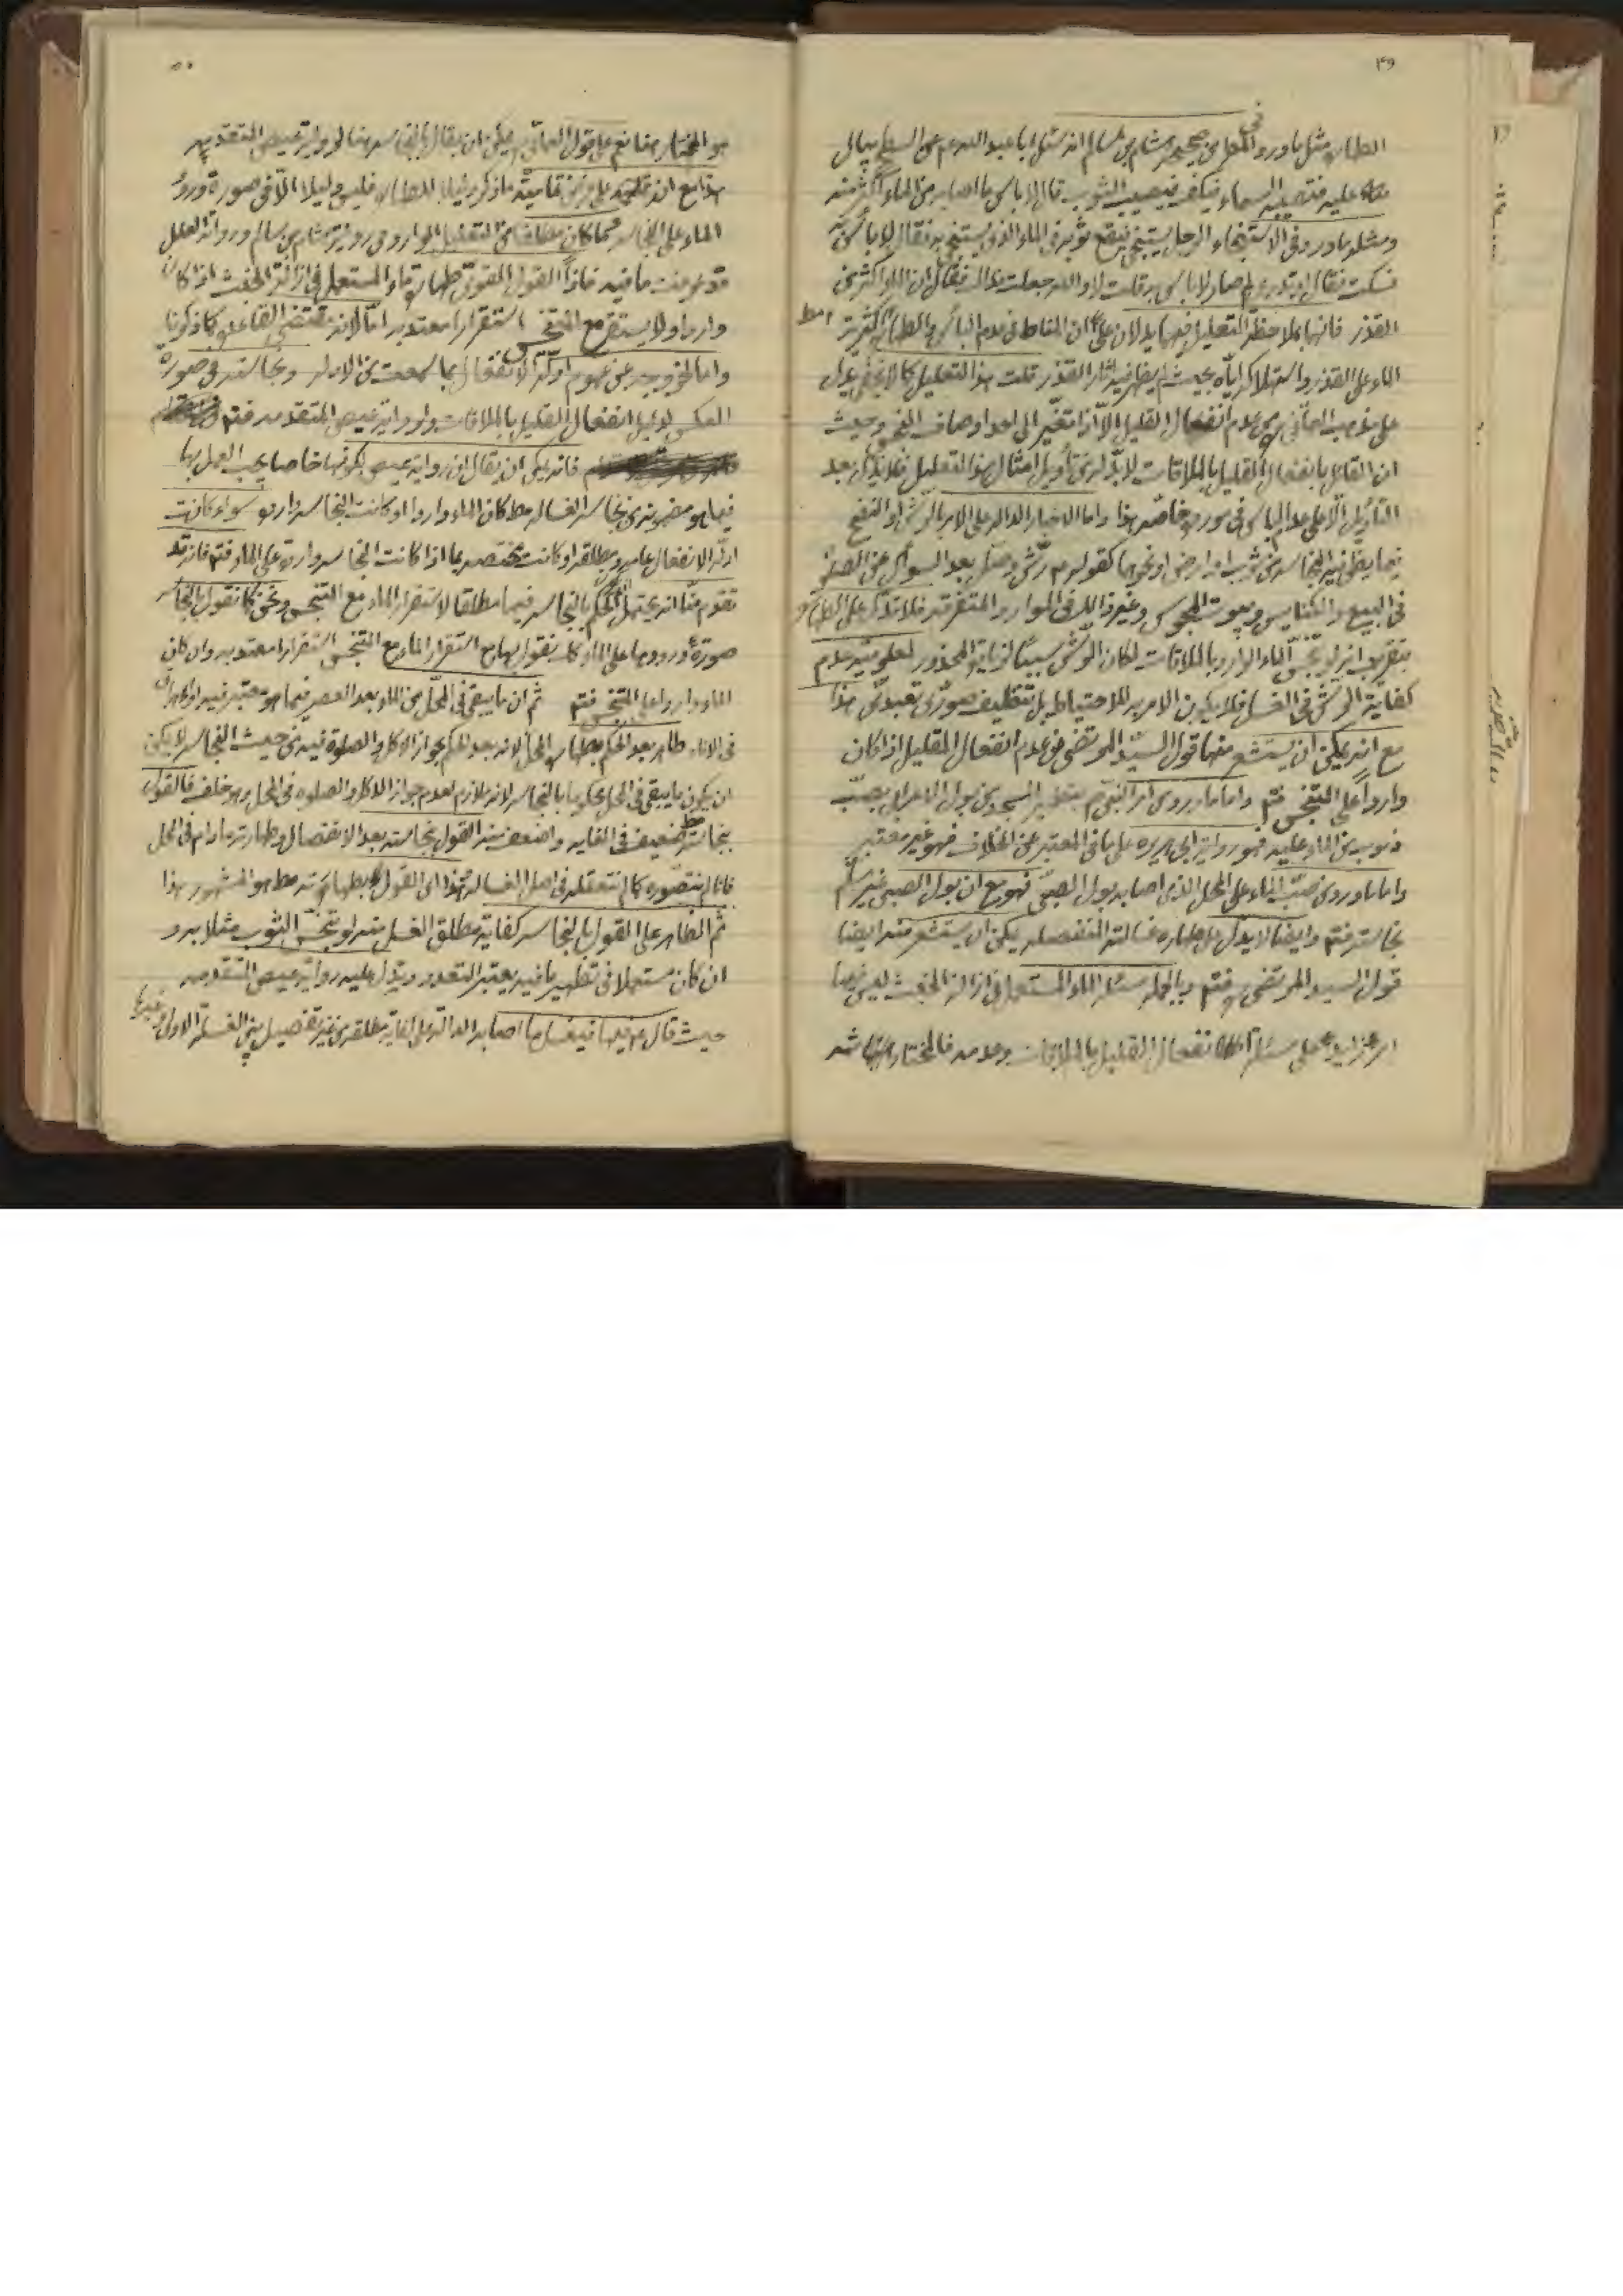 ۴۹
الطهارة مثل ما ورد في صحيحة هشام بن سالم انه سئل ابا عبد الله عم عن السطح يبال
عليه فتصيبه السماء فيكف فيصيب الثوب قال لا باس ما اصابه من الماء اكثر منه
ومثله ما ورد في الاستنجاء الرجل يستنجي فيقع ثوبه في الماء الذي يستنجي به فقال لا بأس به
فسكت فقال او تدري لم صار لا باس به قلت لا والله جعلت فداك فقال ان الماء اكثر من
القذر فانهما بملاحظة التعليل فيهما يدلان على ان المناط في عدم البأس والطهارة اكثرية
الماء على القذر واستهلاكه اياه بحيث لم يظهر فيه آثار القذر قلت هذا التعليل كما لا يخفى يدل
على مذهب العماني من عدم انفعال القليل الا اذا تغير الى احد اوصاف النجس وحيث
ان القائل بانفعال القليل بالملاقات لا بد له من تأويل امثال هذا التعليل فلا يدل بعد
التأويل الا على عدم الباس في مورد خاص هذا واما الاخبار الدالة على الامر بالرش او النضح
فيما يظن فيه النجاسة من ثوب او ارض او نحوها كقوله عم رش وصل بعد السؤال عن الصلوة
في البيع والكنايس وبيوت المجوس وغير ذلك في الموارد المتفرقة فلا تدل على الطهارة
بتقريب انه لو تنجس الماء الوارد بالملاقات لكان الرش سببا لزيادة المحذور لعلومية عدم
كفاية الرش في الغسل فلا يكون الامر به للاحتياط بل تنظيف صوري تعبدي هذا
مع انه يمكن ان يستشعر منها قول السيد المرتضى من عدم انفعال القليل اذا كان
وارداً على المتنجس فتم واما ما روى امر النبي ص بتطهير المسجد من بول الاعرابي بصب
ذنوب من الماء عليه فهو رواية ابي هريرة على ما في المعتبر عن الخلاف فهو غير معتبر
واما ما ورد في صب الماء على المحل الذي اصابه بول الصبي فهو مع ان بول الصبي غير مسلم
نجاسته فتم وايضا لا يدل على طهارة غسالته المنفصلة يمكن ان يستشعر منه ايضا
قول السيد المرتضى ره فتم وبالجملة مسئلة الماء المستعمل في ازالة الخبث ليس فيها
امر زايد على مسئلة انفعال القليل بالملاقات وعدمه فالمختار هناك
۵۰
هو المختار هنا نعم على قول العماني يمكن ان يقال بالنجاسة هنا لرواية عيص المتقدمة
الماء على النجاسة كما كان التعليل الوارد في رواية هشام بن سالم ورواية العلل
قد عرفت ما فيه فاذاً القول القوي طهارة ماء المستعمل في ازالة الخبث اذا كان
واردا ولا يستقر مع المتنجس استقرارا معتدبه اما لانه مقتضى القاعدة كما ذكرنا
واما لخروجه عن عموم ادلة الانفعال بما سمعت من الادلة ونجاسته في صورة
العكس لدليل انفعال القليل بالملاقات ولرواية عيص المتقدمة فتم
فانه يمكن ان يقال ان رواية عيص بكونها خاصا يجب العمل بها
فيما هو مضمونه من نجاسة الغسالة مط كان الماء واردا او كانت النجاسة واردة سواء كانت
ادلة الانفعال عامة ومطلقة او كانت مختصة بما اذا كانت النجاسة واردة على الماء فتم فانه قد
تقدم منا انه يحتمل الحكم بالنجاسة فيما مطلقا لاستقرار الماء مع المتنجس ونحن كما نقول بالنجاسة
صورة ورودها على الماء كك نقول بها مع استقرار الماء مع المتنجس استقرارا معتدبه وان كان
الماء واردا على المتنجس فتم ثم ان ما يبقى في المحل من الماء بعد العصر فيما هو معتبر فيه او
في الاناء طاهر بعد الحكم بطهارة المحل لانه بعد الحكم بجواز الاكل والصلوة فيه من حيث النجاسة لا يمكن
ان يكون ما يبقى في المحل محكوما بالنجاسة لانه ملازم لعدم جواز الاكل والصلوة في المحل وهو خلف فالقول
بنجاسته مط ضعيف في الغاية واضعف منه القول بنجاسته بعد الانفصال وطهارته ما دام في المحل
فانا لم نتصوره كما لم نتعقله في اصل الغسالة هذا القول بطهارته مط هو المشهور هذا
ثم الظاهر على القول بالنجاسة كفاية مطلق الغسل منه لو تنجس الثوب مثلا به و
ان كان مستعملا في تطهير ما فيه يعتبر التعدد ويدل عليه رواية عيص المتقدمة
حيث قال عم فيها فيغسل ما اصابه الدالة على كفاية مطلقه من غير تفصيل بين الغسلة الاولى وغيرها